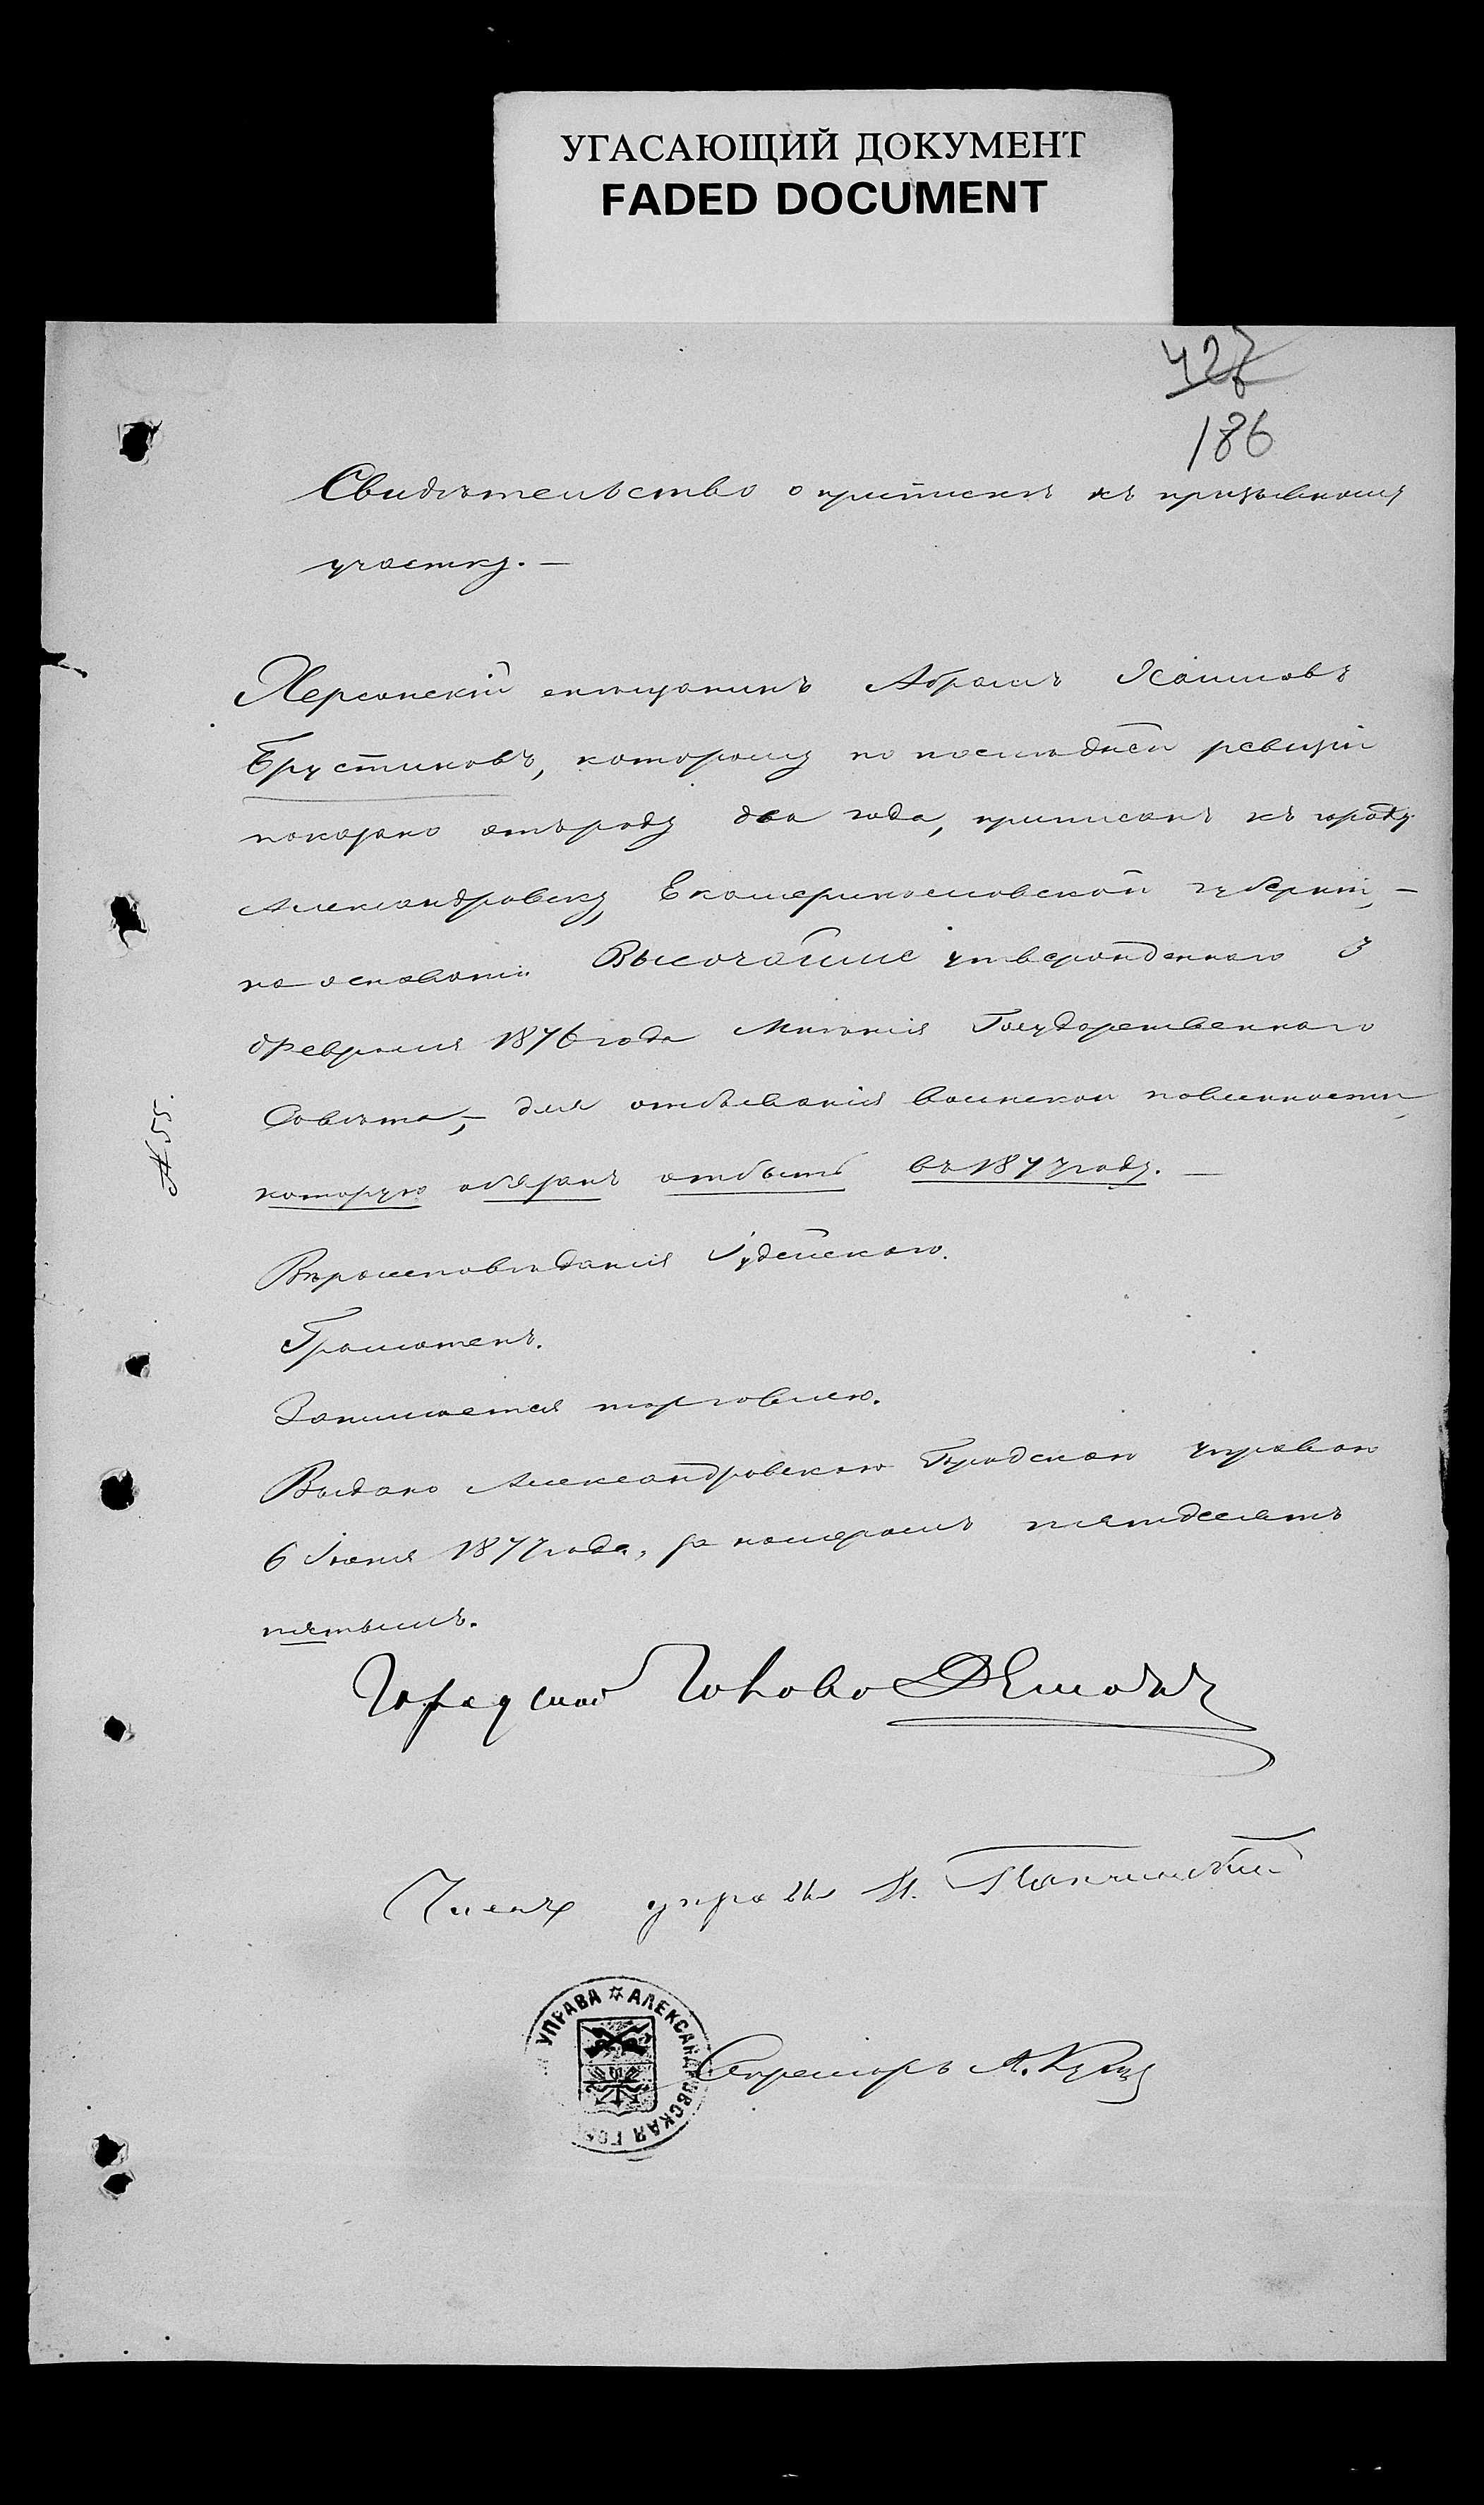 УГАСАЮЩИЙ ДОКУМЕНТ
FADED DOCUMENT
427
186
Свидѣтельство о припискѣ къ призывному
участку. —
Херсонскій мѣщанинъ Абрамъ Хаимовъ
Брустиновъ, которому по послѣдней ревизіи
показано отъ роду два года, приписанъ къ городу
Александровску, Екатеринославской губерніи, —
на основаніи Высочайше утвержденнаго 3
Февраля 1876 года Мнѣнія Государственнаго
Совѣта, — для отбыванія воинской повинности,
которую обязанъ отбыть въ 1877 году. —
№ 55.
Вѣроисповѣданія Іудейскаго.
Грамотенъ.
Занимается торговлею.
Выдано Александровскою Городскою управою
6 Іюня 1877 года, за номеромъ пятьдесятъ
пятымъ.
Городской Голова
Членъ управы И.
УПРАВА ☆ АЛЕКСАНДРОВСКАЯ ГОР
Секретарь А.